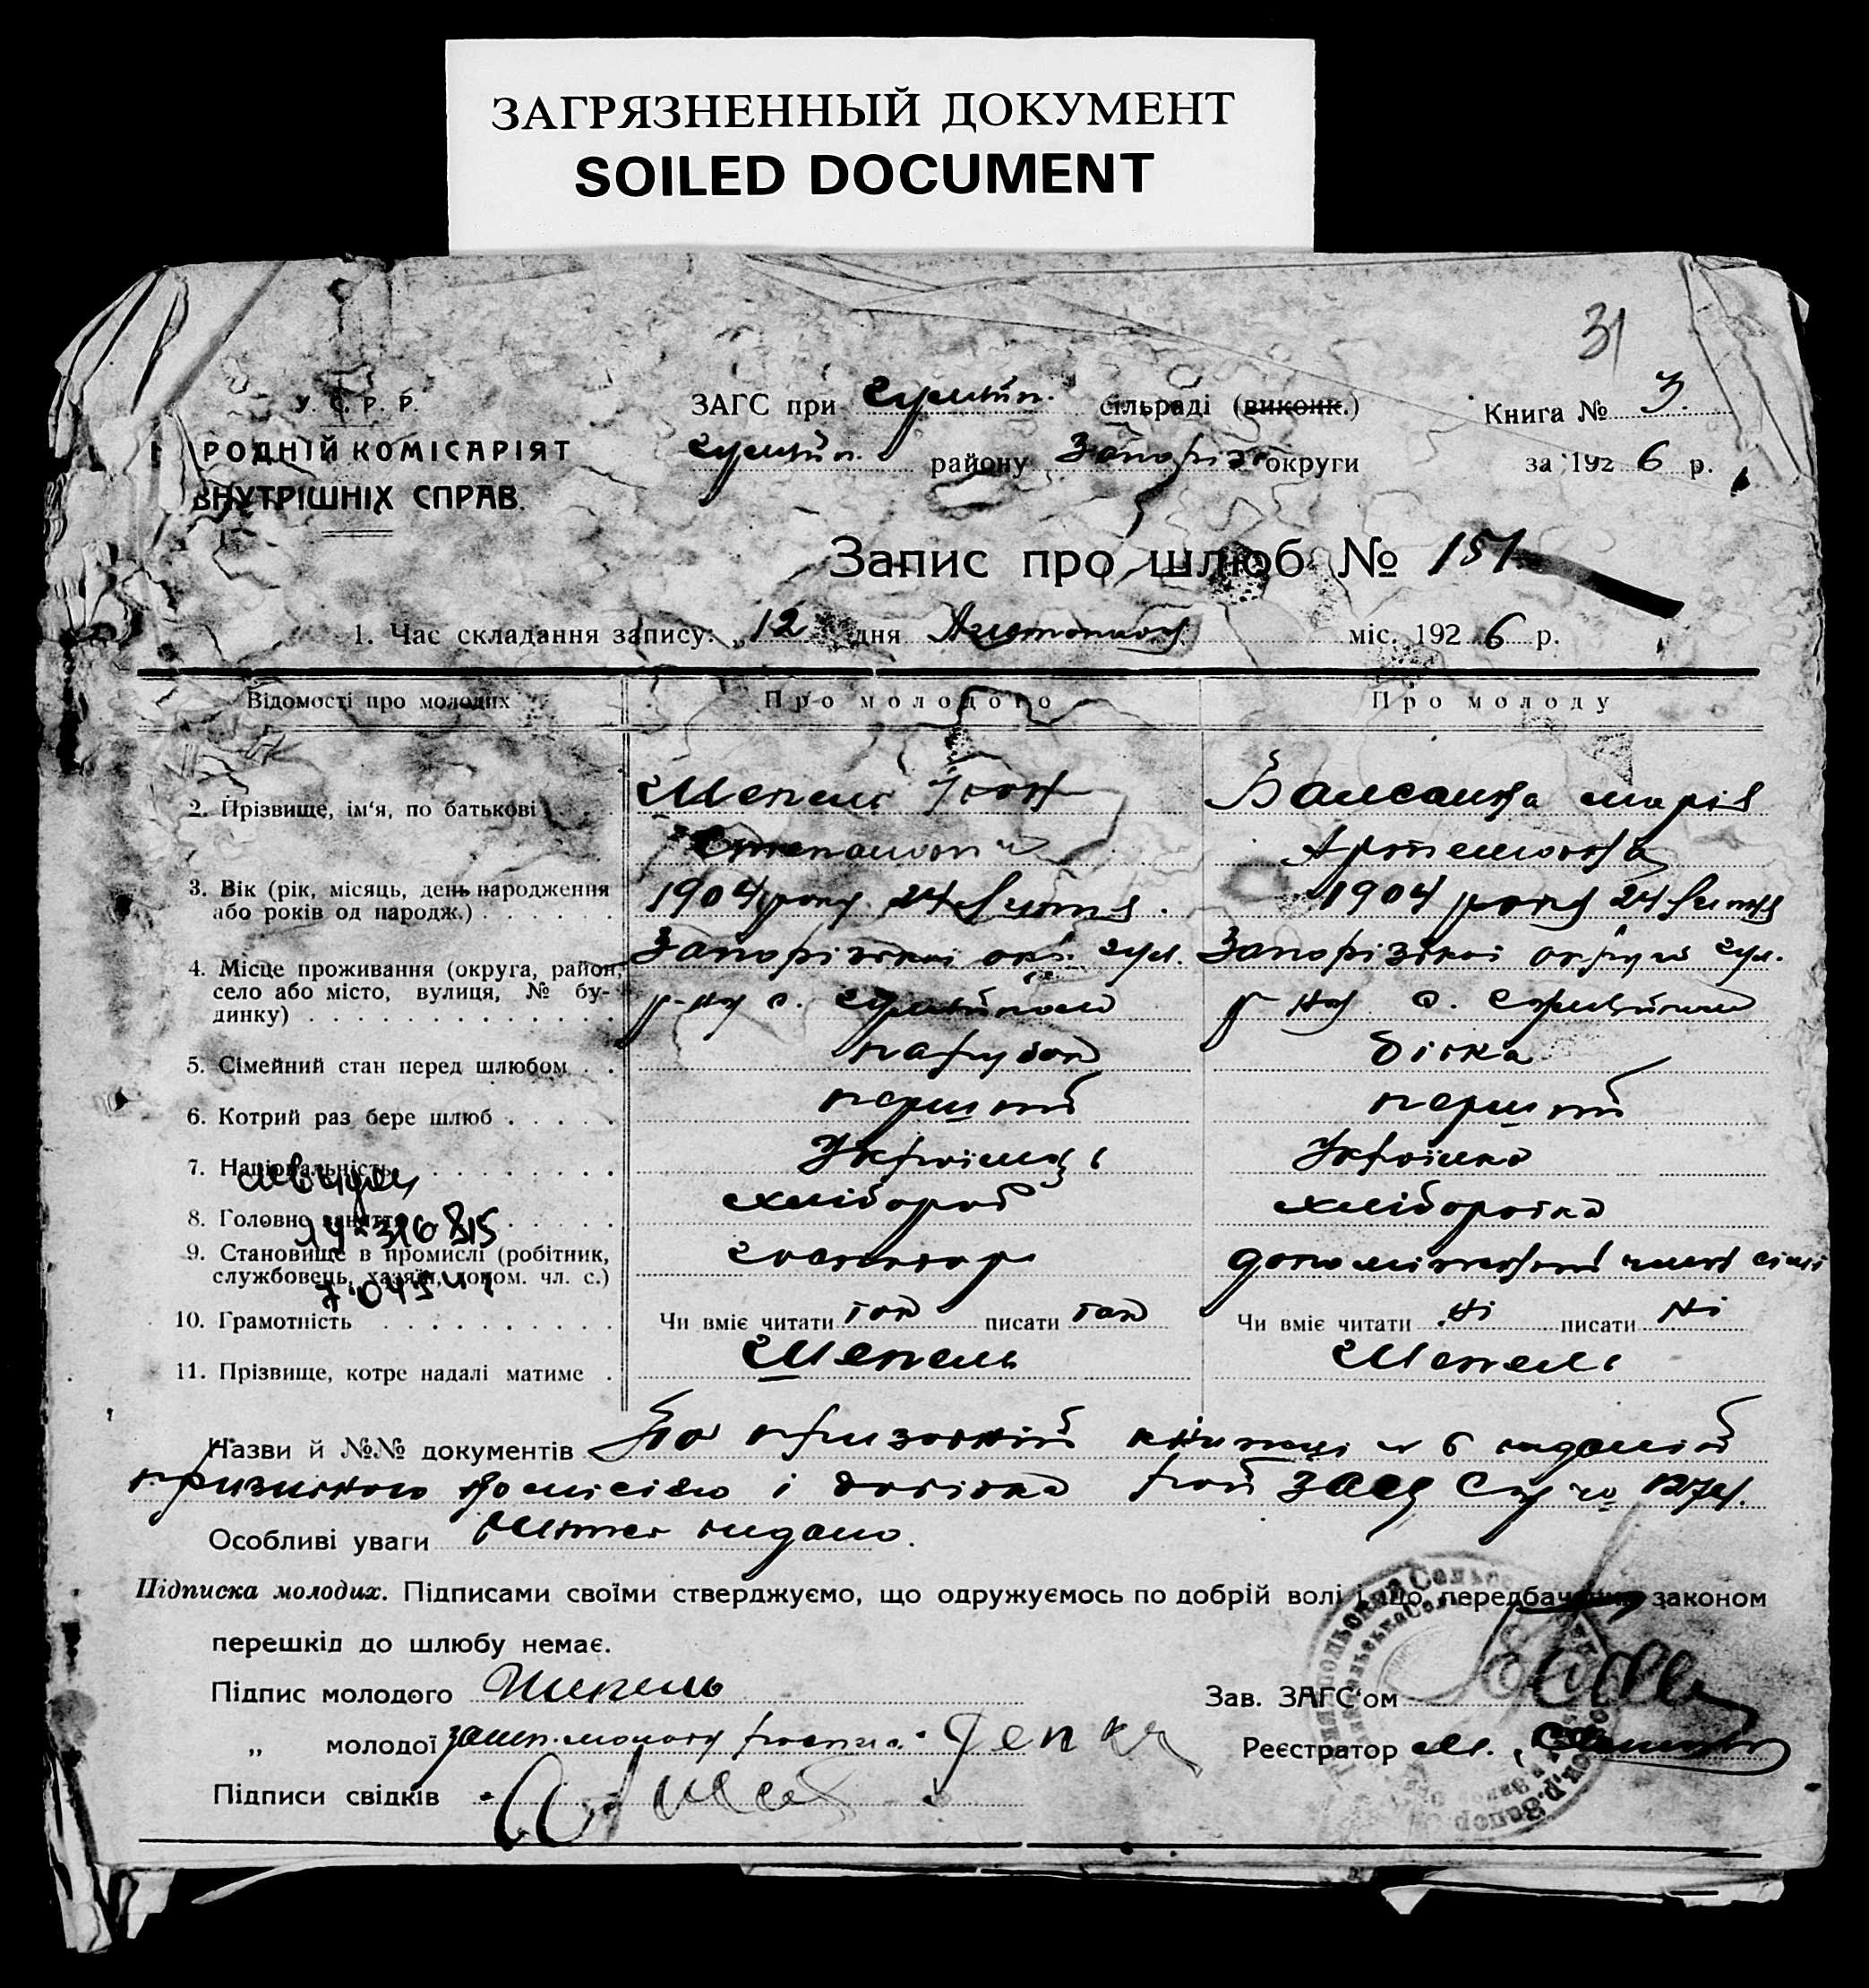 ЗАГРЯЗНЕННЫЙ ДОКУМЕНТ
SOILED DOCUMENT
31
У. С. Р. Р.
РОДНІЙ КОМІСАРІЯТ
ВНУТРІШНІХ СПРАВ.
ЗАГС при Гуляйп. сільраді (виконк.)
Гуляйп. району Запоріз округи
Книга № 3
за 1926 р.
Запис про шлюб № 151
1. Час складання запису: „12 дня Листопаду міс. 1926 р.
Відомості про молодих
Про молодого
Про молоду
2. Прізвище, ім'я, по батькові
Шепель Іван
Степанович
марія
Артемовна
3. Вік (рік, місяць, день народження
або років од народж.)
1904 року 24 Лютня
1904 року 24 Лютня
4. Місце проживання (округа, район,
село або місто, вулиця, № бу-
динку)
Запорізької окр. Гул.
р-ну с. Гуляйполе
Запорізької округи Гул.
р-ну с. Гуляйполе
5. Сімейний стан перед шлюбом
парубок
дівка
6. Котрий раз бере шлюб
перший
перший
7. Національність
Українець
Українка
8. Головне заняття
хлібороб
хліборобка
9. Становище в промислі (робітник,
службовець, хазяїн, допом. чл. с.)
господар
допоміжний член сімї
10. Грамотність
Чи вміє читати так писати так
Чи вміє читати ні писати ні
11. Прізвище, котре надалі матиме
Шепель
Шепель
Назви й №№ документів По призовній книжці № 6 виданій
призивною комісією і довідка рай ЗАГС 1274.
Особливі уваги Витяг видано.
Підписка молодих. Підписами своїми стверджуємо, що одружуємось по добрій волі і що передбачених законом
перешкід до шлюбу немає.
Підпис молодого Шепель
„ молодої
Підписи свідків
Зав. ЗАГС'ом
Реєстратор М.